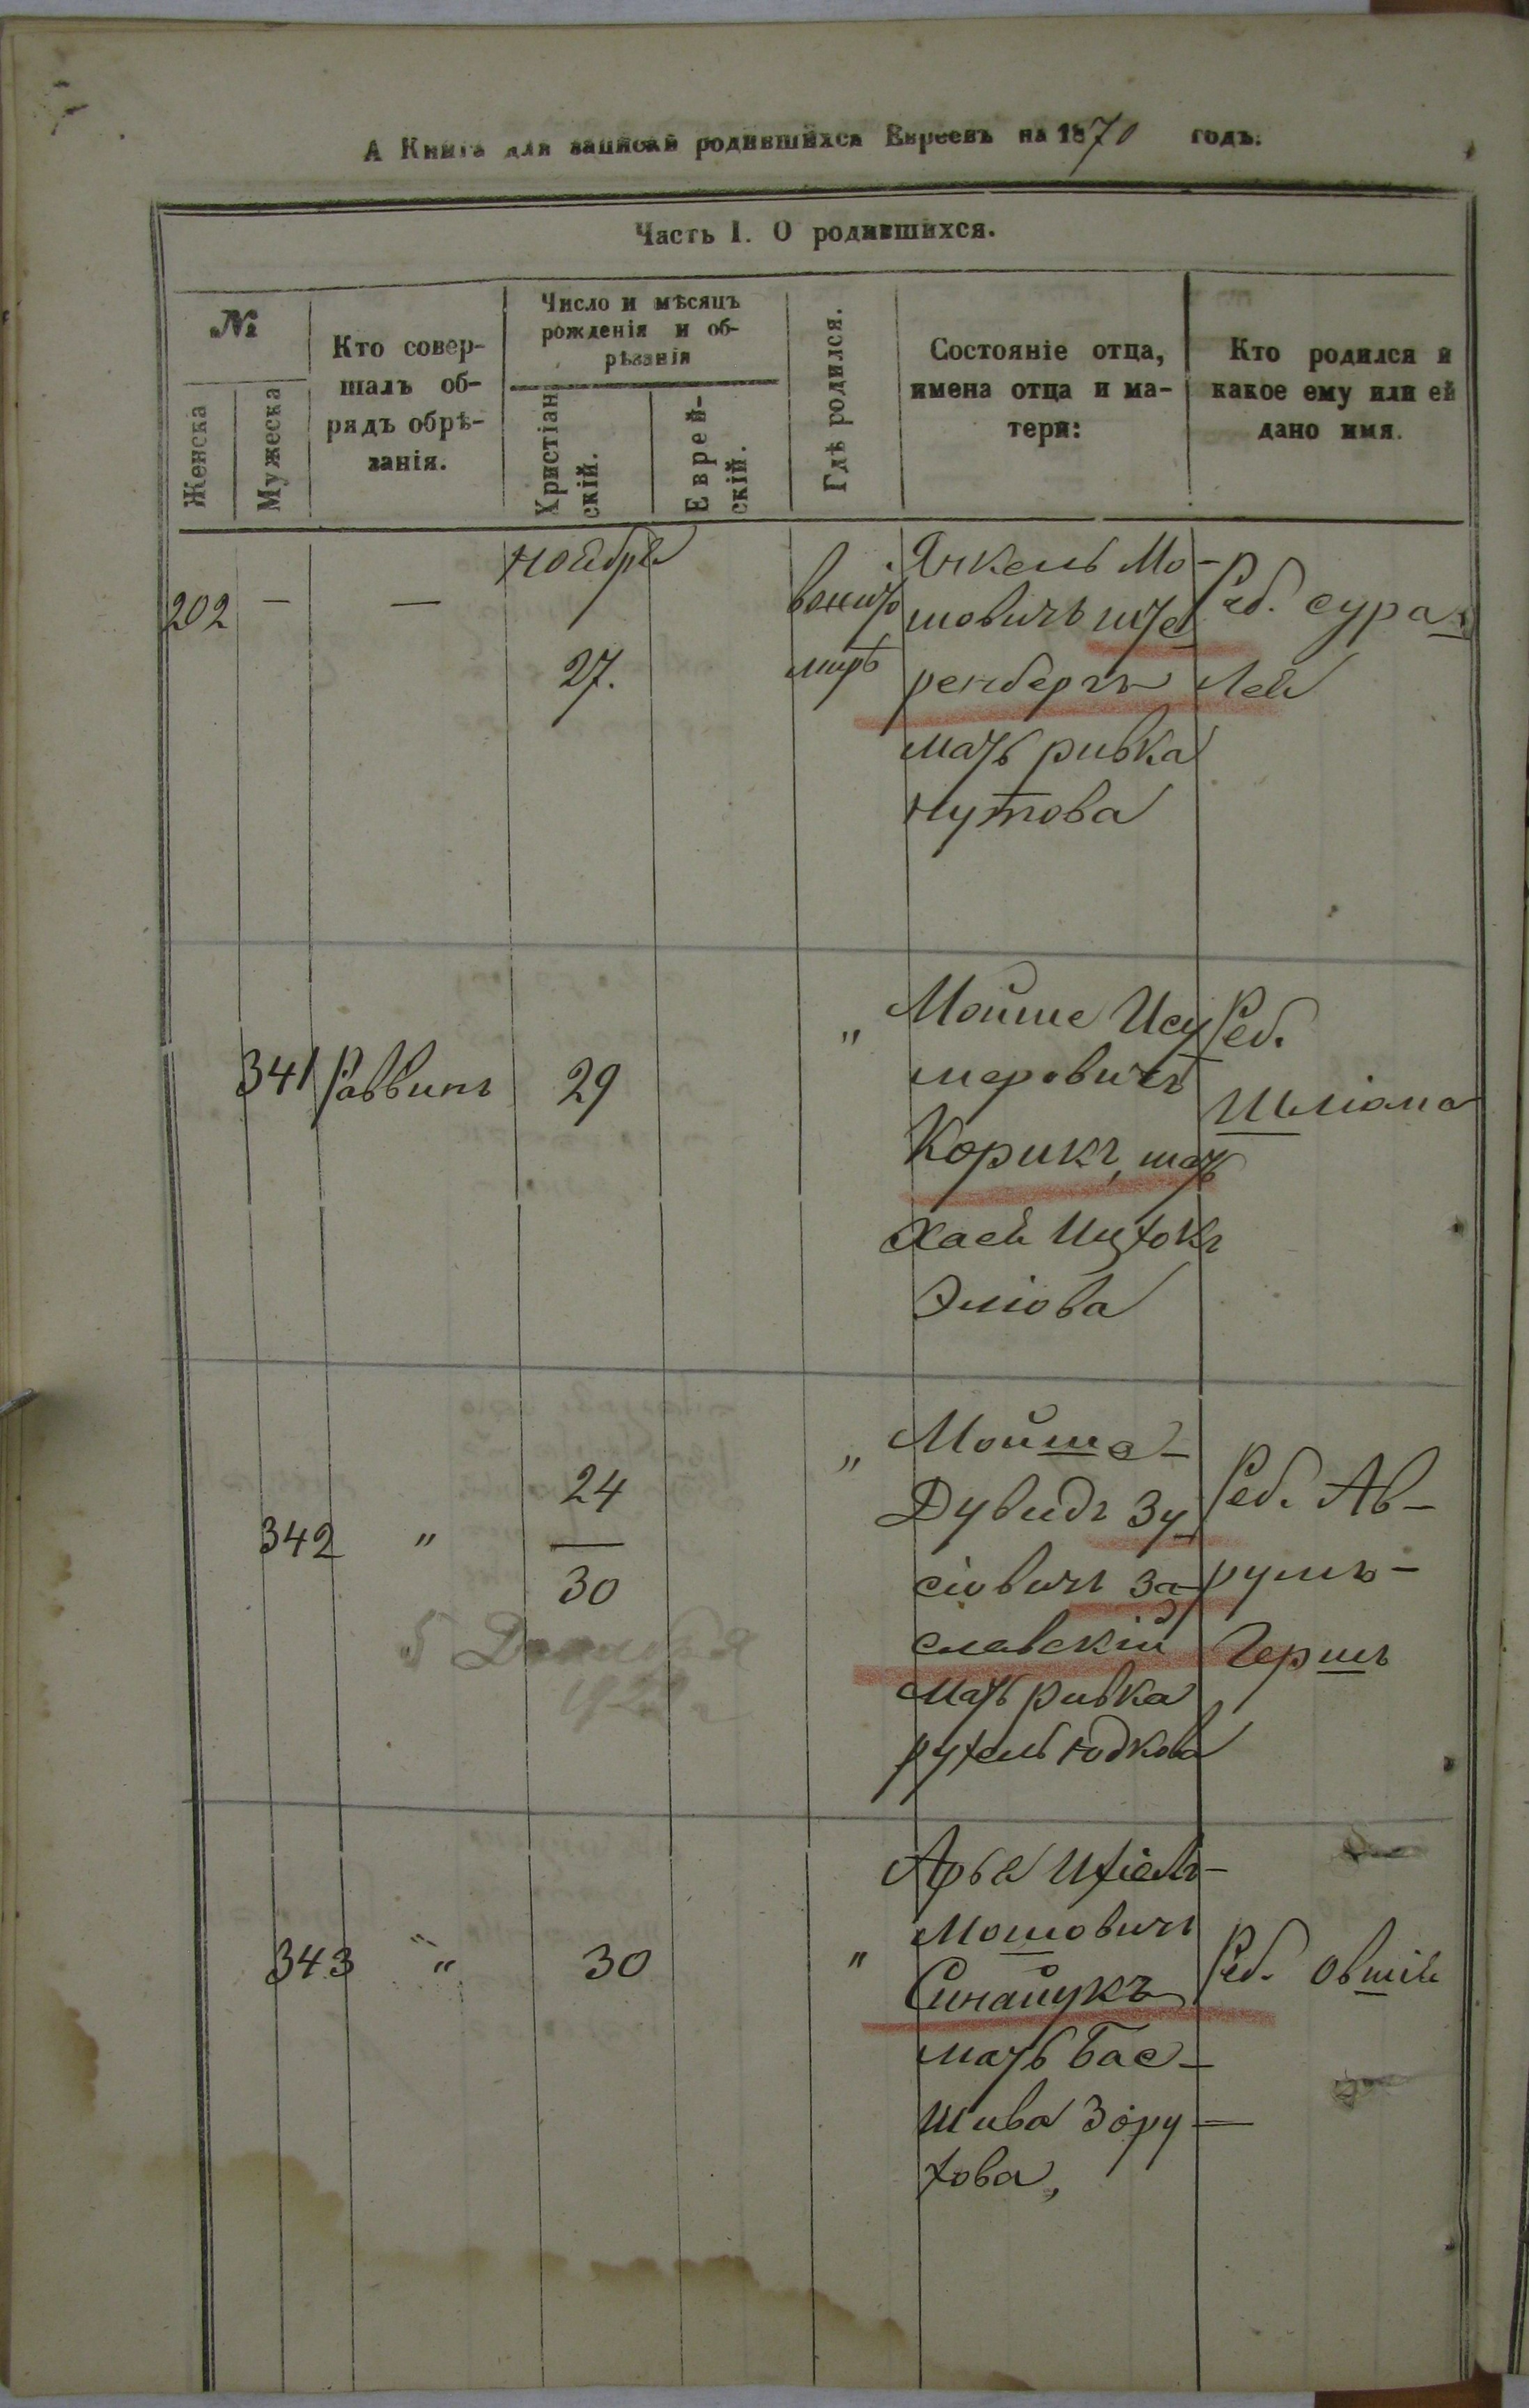 А Книга для записки родившихся Евреевъ на 1870 годъ.
Часть I. О родившихся.
№
Женска
Мужеска
Кто совер-
шалъ об-
рядъ обрѣ-
занія.
Число и мѣсяцъ
рожденія и об-
рѣзанія
Христіан
скій.
Еврей-
скій.
Гдѣ родился.
Состояніе отца,
имена отца и ма-
тери:
Кто родился и
какое ему или ей
дано имя.
202
—
—
Ноября
27.
Янкель Мо-
шовичъ ште
ренбергъ
мать ривка
Нутова
Реб. сура
Лея
341
Раввинъ
29
„
Мойше Иcу
меровичъ
Корикъ, мать
Хаея
Эліова
Реб.
Шліома
342
"
24
30
5 Декабря
„
Мойше-
Дувидъ Зу
сіовичъ За-
славскій
мать ривка
рухель Юдкова
Реб. Ав-
румъ-
Гершъ
343
"
30
"
Арья Ихіель-
Мошовичъ
Синайукъ
мать Бас-
Шива Зору-
хова,
Реб. Овшій